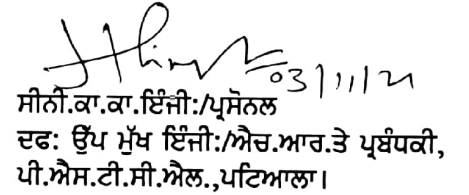 03/11/21
ਸੀਨੀ.ਕਾ.ਕਾ.ਇੰਜੀ:/ਪ੍ਰਸੋਨਲ
ਦਫ: ਉੱਪ ਮੁੱਖ ਇੰਜੀ:/ਐਚ.ਆਰ.ਤੇ ਪ੍ਰਬੰਧਕੀ,
ਪੀ.ਐਸ.ਟੀ.ਸੀ.ਐਲ.,ਪਟਿਆਲਾ।